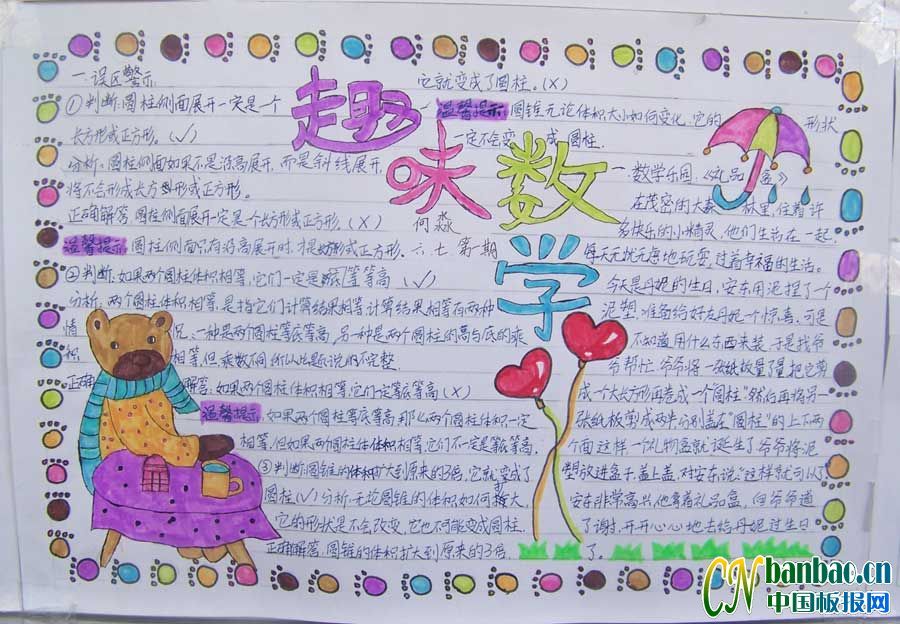 趣味数学
何淼
六.七.第一期
一.误区警示:
①判断:圆柱侧面展开一定是一个
长方形或正方形。(✓)
分析:圆柱侧面如果不是沿高展开,而是斜线展开,
将不会形成长方形或正方形。
正确解答:圆柱侧面展开一定是个长方形或正方形。(X)
温馨提示:圆柱侧面只有沿高展开时,才是长方形或正方形.
②判断:如果两个圆柱体积相等,它们一定是等底等高 (✓)
分析:两个圆柱体积相等,是指它们计算结果相等,计算结果相等有两种
情况,一种是两个圆柱等底等高,另一种是两个圆柱的高与底的乘
积相等,但乘数不同,所以此题说的不完整.
正确解答:如果两个圆柱体积相等,它们一定等底等高(X)
温馨提示:如果两个圆柱等底等高,那么两个圆柱体积一定
相等,但如果两个圆柱体体积相等,它们不一定是等底等高.
③判断:圆锥的体积扩大到原来的3倍,它就变成了
圆柱(✓)分析:无论圆锥的体积如何扩大,
它的形状是不会改变,它也不可能变成圆柱.
正确解答:圆锥的体积扩大到原来的3倍,
它就变成了圆柱。(X)
温馨提示:圆锥无论体积大小如何变化,它的形状
一定不会变成圆柱.
一.数学乐园:《礼品盒》
在茂密的大森林里,住着许
多快乐的小精灵,他们生活在一起,
每天无忧无虑地玩耍,过着幸福的生活。
今天是丹妮的生日,安东用泥捏了一个
泥塑,准备给好友丹妮一个惊喜,可是
不知道用什么东西来装,于是找爷
爷帮忙,爷爷将一张纸板量了量,把它剪
成一个大长方形再卷成一个圆柱",然后再将另一
张纸板剪成两半分别盖在"圆柱"的上下两
个面,这样一个礼物盒就诞生了.爷爷将泥
塑放进盒子,盖上盖,对安东说:"这样就可以了
安东非常高兴,他拿着礼品盒,向爷爷道
了谢,开开心心地去给丹妮过生日
了.
CN banbao.cn
中国板报网